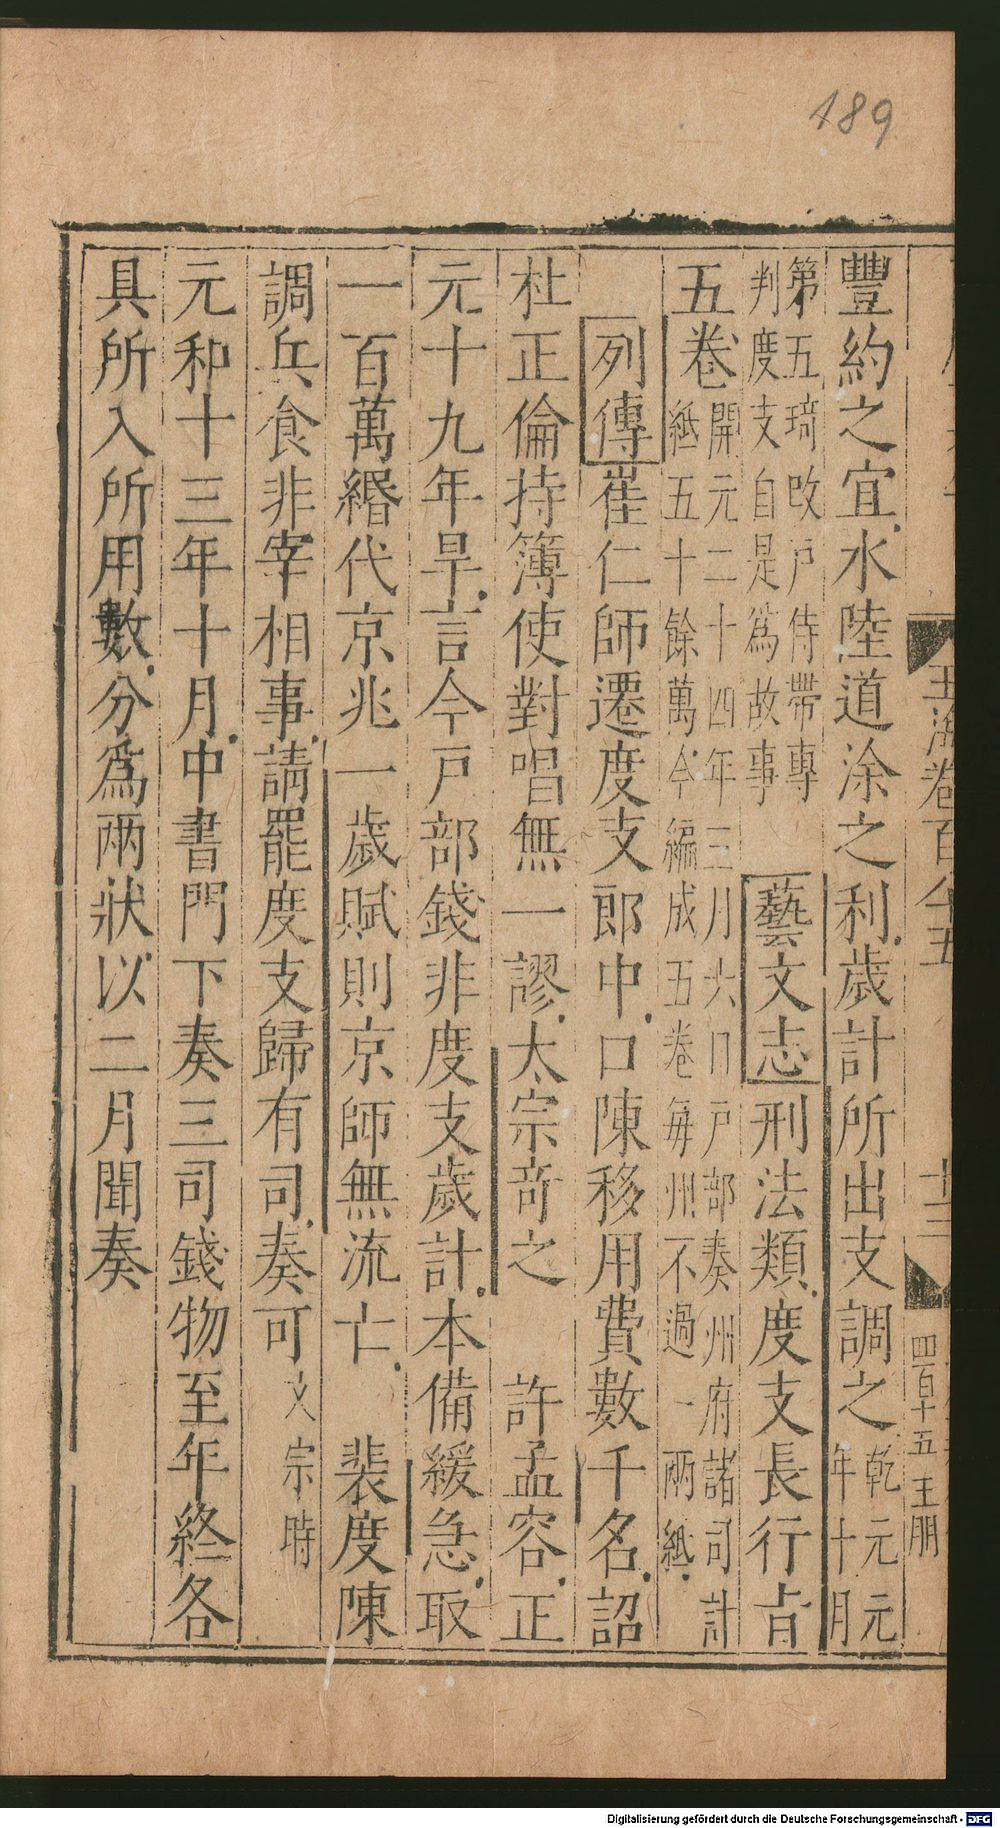 189
豐約之宜水陸道涂之利歲計所出支調之乾元元年十月
第五琦改戶侍帶專判度支自是爲故事 藝文志刑法類度支長行旨
五卷開元二十四年三月六日戶部奏州府諸司計紙五十餘萬今編成五卷每州不過一兩紙
列傳崔仁師遷度支郎中口陳移用費數千名詔
杜正倫持簿使對唱無一謬太宗奇之 許孟容正
元十九年旱言今戶部錢非度支歲計本備緩急取
一百萬緡代京兆一歲賦則京師無流亡 裴度陳
調兵食非宰相事請罷度支歸有司奏可文宗時
元和十三年十月中書門下奏三司錢物至年終各
具所入所用數分爲兩狀以二月聞奏
玉海卷百八十五
十三
四百十五 王朋
Digitalisierung gefördert durch die Deutsche Forschungsgemeinschaft - DFG